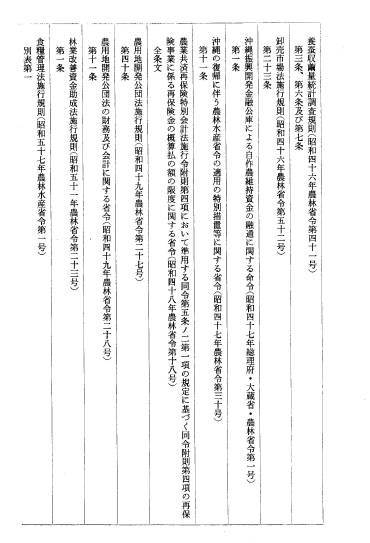 蚕繭収繭量統計調査規則(昭和四十六年農林省令第四十一号)
第三条、第六条及び第七条
卸売市場法施行規則(昭和四十六年農林省令第五十二号)
第二十三条
沖縄振興開発金融公庫による自作農維持資金の融通に関する命令(昭和四十七年総理府・大蔵省・農林省令第一号)
第一条
沖縄の復帰に伴う農林水産省令の適用の特別措置等に関する省令(昭和四十七年農林省令第三十号)
第十一条
農業共済再保険特別会計法施行令附則第四項において準用する同令第五条ノ二第一項の規定に基づく同令附則第四項の再保
険事業に係る再保険金の概算払の額の限度に関する省令(昭和四十八年農林省令第十八号)
全条文
農用地開発公団法施行規則(昭和四十九年農林省令第二十七号)
第四十条
農用地開発公団法の財務及び会計に関する省令(昭和四十九年農林省令第二十八号)
第十一条
林業改善資金助成法施行規則(昭和五十一年農林省令第二十三号)
第一条
食糧管理法施行規則(昭和五十七年農林水産省令第一号)
別表第一